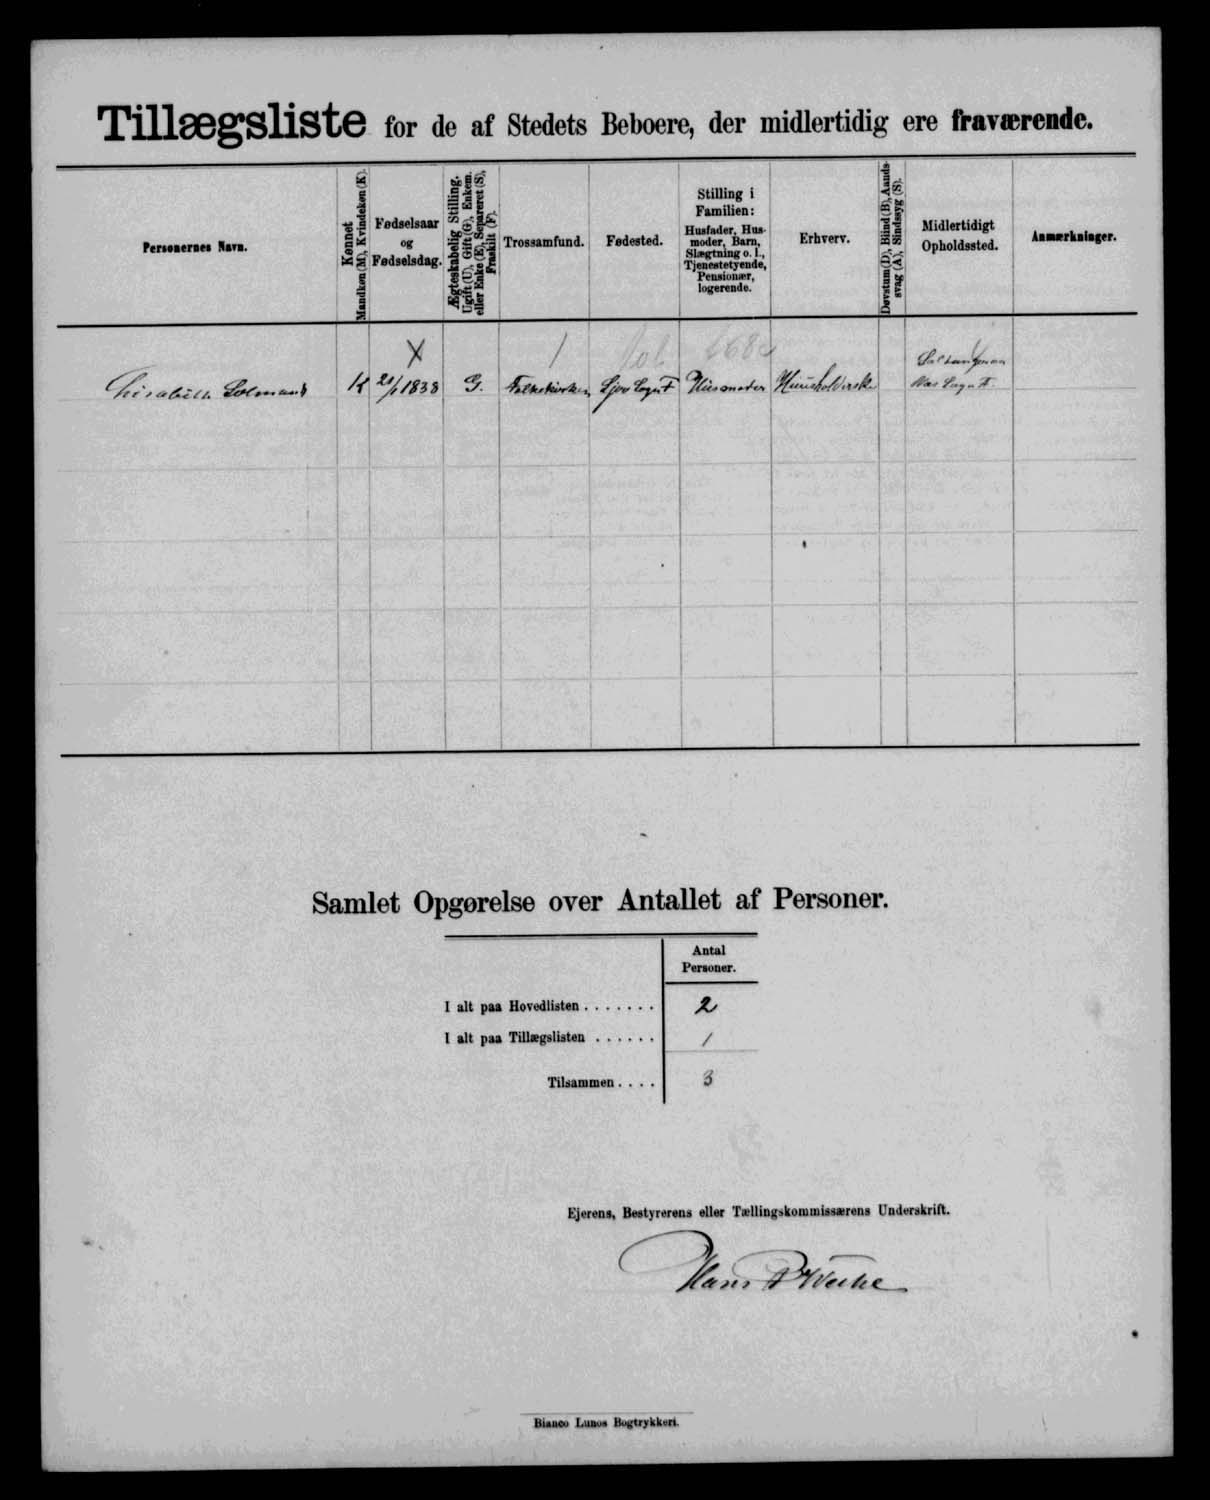 Tillægsliste for de af Stedets Beboere, der midlertidig ere fraværende.
Personernes Navn.
Kønnet
Mandkøn (M), Kvindekøn (K).
Fødselsaar
og
Fødselsdag.
Ægteskabelig Stilling.
Ugift (U), Gift (G), Enkem.
eller Enke (E), Separeret (S),
Fraskilt (F).
Trossamfund.
Fødested.
Stilling i
Familien:
Husfader, Hus-
moder, Barn,
Slægtning o. l.,
Tjenestetyende,
Pensionær,
logerende.
Erhverv.
Døvstum (D), Blind (B), Aands-
svag (A), Sindssyg (S).
Midlertidigt
Opholdssted.
Anmærkninger.
X 1
K 1838 G. Folkekirken Husmoder
Samlet Opgørelse over Antallet af Personer.
Antal
Personer.
I alt paa Hovedlisten . . . . . . . 2
I alt paa Tillægslisten . . . . . . 1
Tilsammen . . . . 3
Ejerens, Bestyrerens eller Tællingskommissærens Underskrift.
Hans
Bianco Lunos Bogtrykkeri.